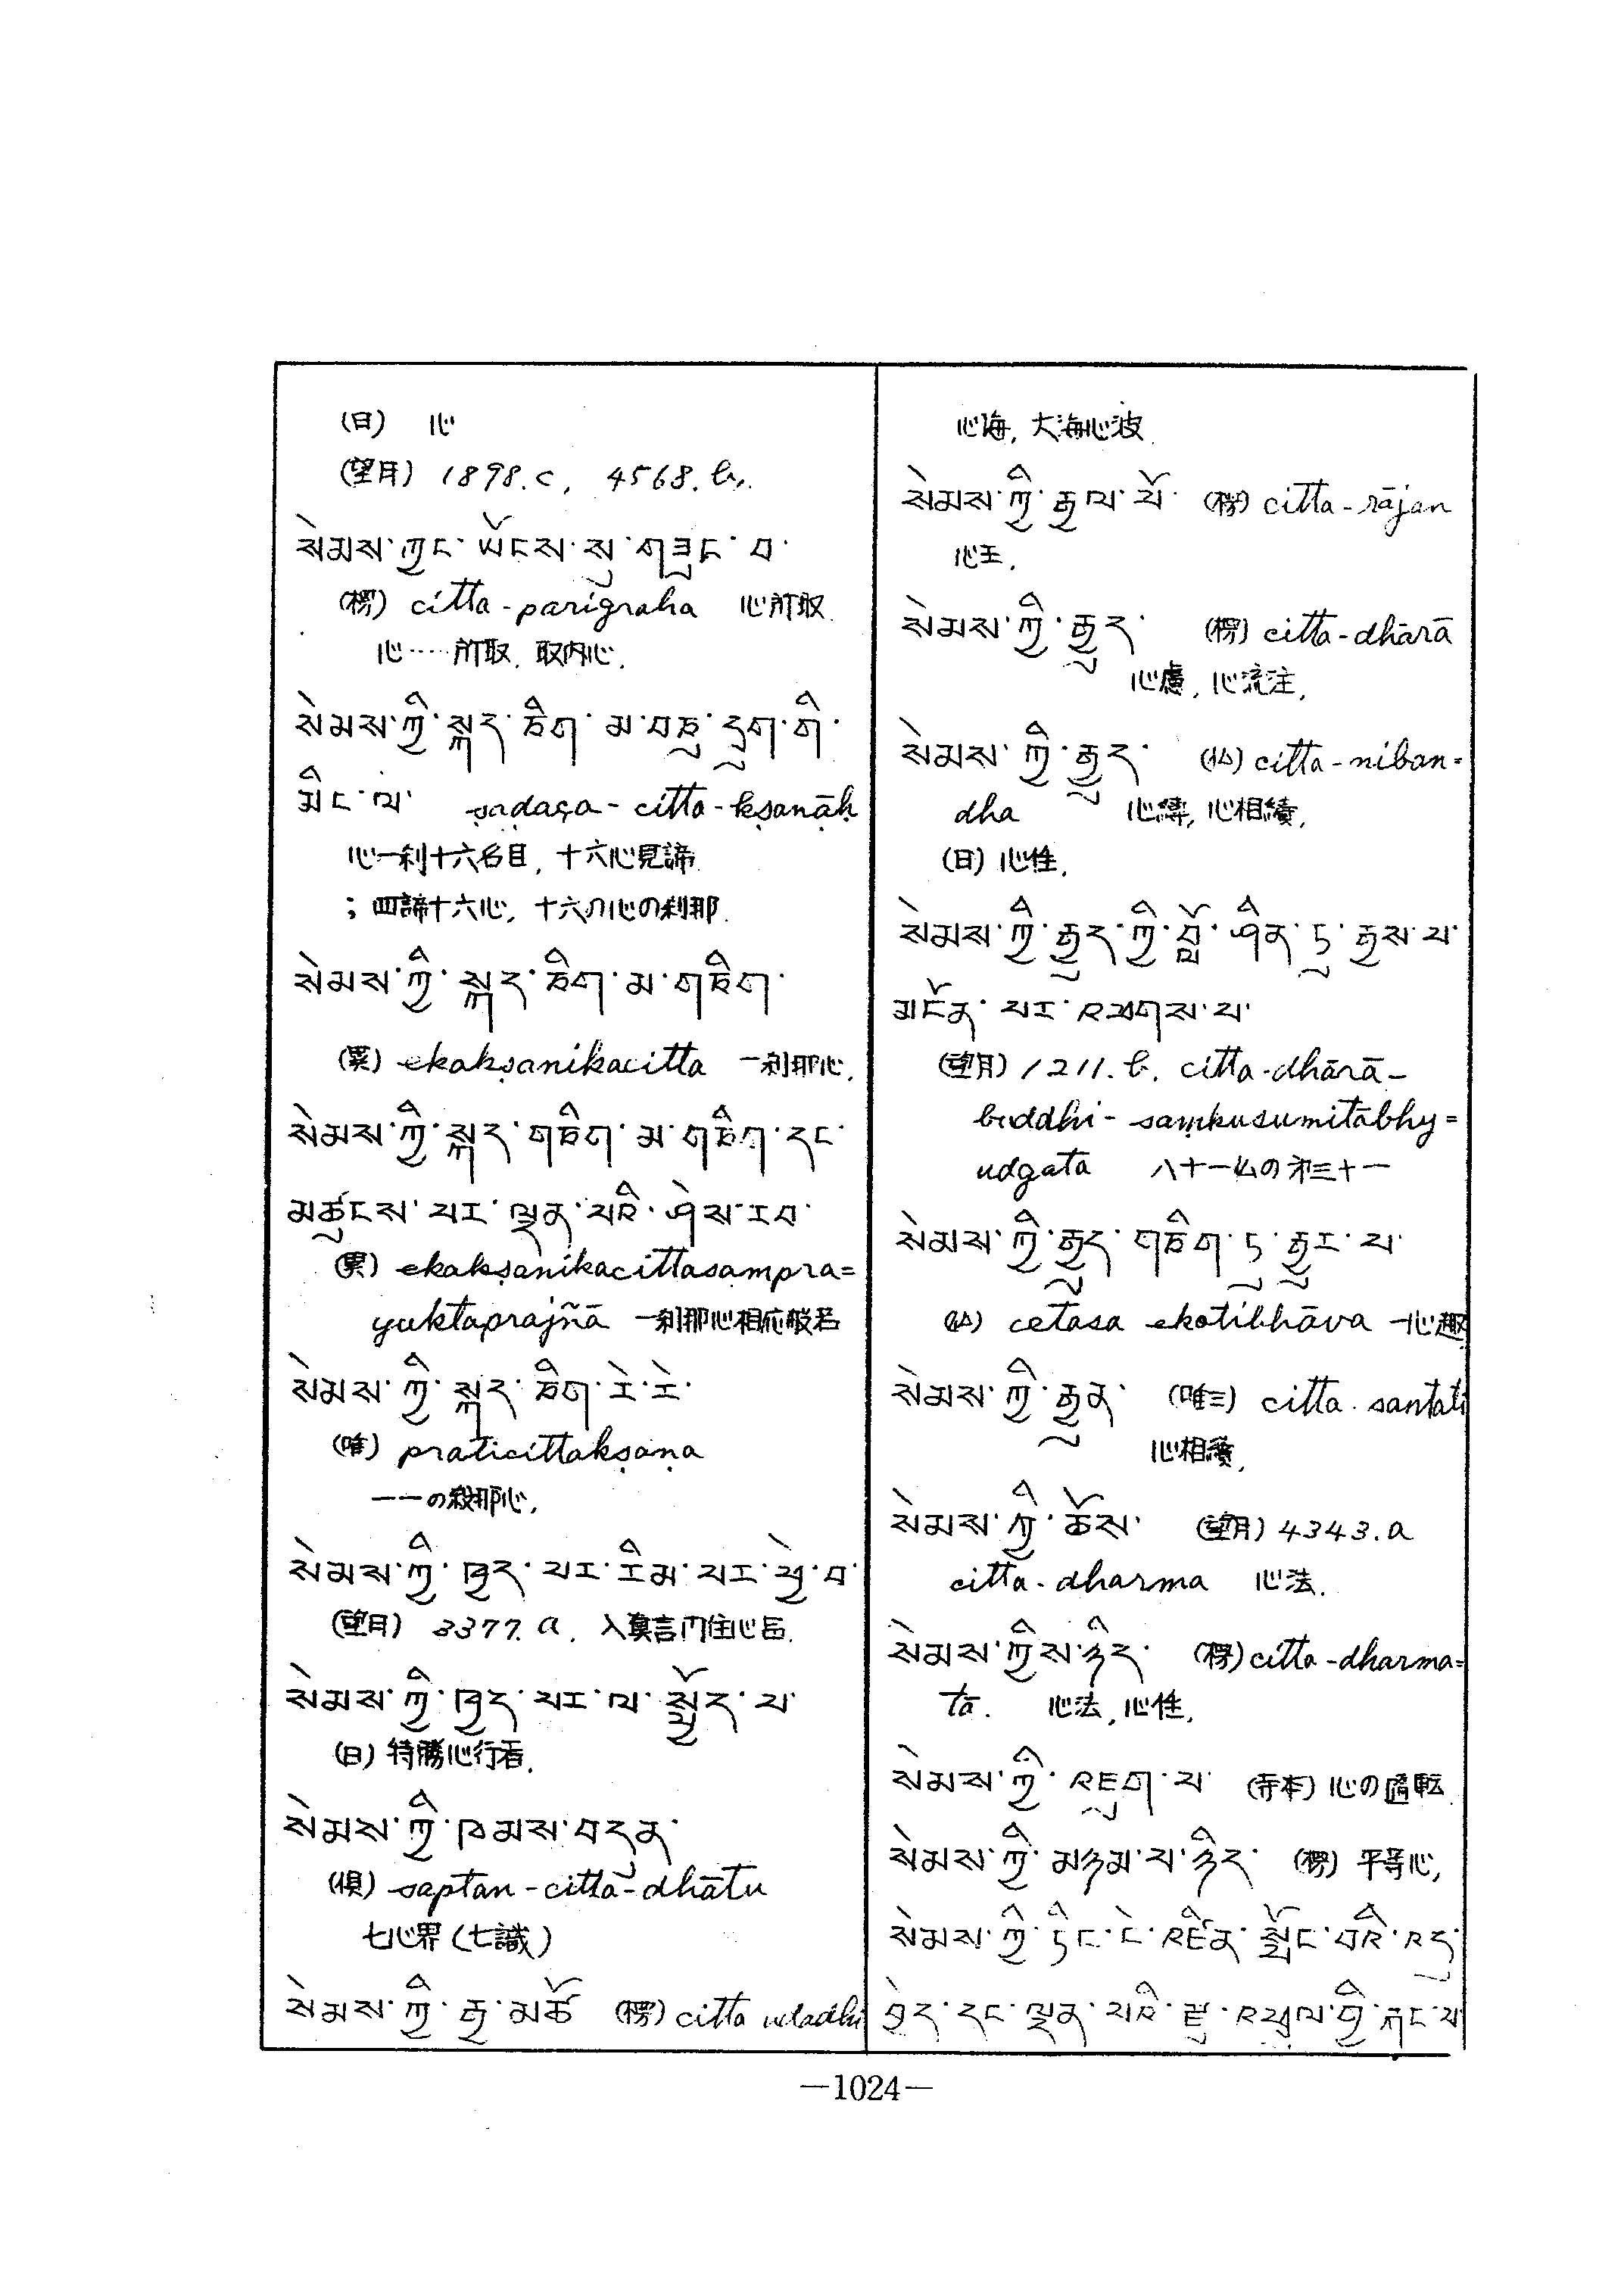 (日) 心
(望月) 1898.c, 4568.b,.
སེམས་ཀྱང་ཡོངས་སུ་གཟུང་བ་
(楞) citta-parigraha 心所取.
心……所取, 取内心.
སེམས་ཀྱི་སྐད་ཅིག་མ་བཅུ་དྲུག་གི་
མིང་ལ་ ṣaḍaça-citta-kṣaṇāḥ
心一刹十六名目, 十六心見諦.
; 四諦十六心, 十六の心の刹那.
སེམས་ཀྱི་སྐད་ཅིག་མ་གཅིག་
(累) ekakṣanikacitta 一刹那心.
སེམས་ཀྱི་སྐད་གཅིག་མ་གཅིག་དང་
མཚུངས་པར་ལྡན་པའི་ཤེས་རབ་
(累) ekakṣanikacittasampra=
yuktaprajñā 一刹那心相応般若
སེམས་ཀྱི་སྐད་ཅིག་རེ་རེ་
(唯) praticittakṣaṇa
一一の殺那心.
སེམས་ཀྱི་ཁྱད་པར་རིམ་པར་ཕྱེ་བ་
(望月) 3377.a. 入眞言門住心品.
སེམས་ཀྱི་ཁྱད་པར་ལ་སྤྱོད་པ་
(日) 特勝心行者.
སེམས་ཀྱི་ཁམས་བདུན་
(倶) saptan-citta-dhātu
七心界 (七識)
སེམས་ཀྱི་རྒྱ་མཚོ (楞) citta udadhi
心海, 大海心波.
སེམས་ཀྱི་རྒྱལ་པོ་ (楞) citta-rājan
心王.
སེམས་ཀྱི་རྒྱུད་ (楞) citta-dhārā
心慮, 心流注.
སེམས་ཀྱི་རྒྱུད་ (仏) citta-niban=
dha 心縛, 心相續.
(日) 心性.
སེམས་ཀྱི་རྒྱུད་ཀྱི་བློ་ཤིན་ཏུ་རྒྱས་པ་
མངོན་པར་འཕགས་པ་
(望月) 1211.b. citta-dhārā-
buddhi-saṃkusumitābhy=
udgata 八十一仏の第三十一
སེམས་ཀྱི་རྒྱུད་གཅིག་ཏུ་རྒྱུར་པ་
(仏) cetasa ekotibhāva 一心趣
སེམས་ཀྱི་རྒྱུན་ (唯三) citta santati
心相續.
སེམས་ཀྱི་ཆོས་ (望月) 4343.a
citta-dharma 心法.
སེམས་ཀྱིས་ཉིད་ (楞) citta-dharma=
tā. 心法, 心性.
སེམས་ཀྱི་འཇུག་པ་ (寺本) 心の転
སེམས་ཀྱི་མཉམ་པ་ཉིད་ (楞) 平等心,
སེམས་ཀྱི་ཏིང་ངེ་འཛིན་སྤོང་བའི་འདུ་
བྱེད་དང་ལྡན་པའི་རྫུ་འཕྲུལ་གྱི་རྐང་པ
—1024—